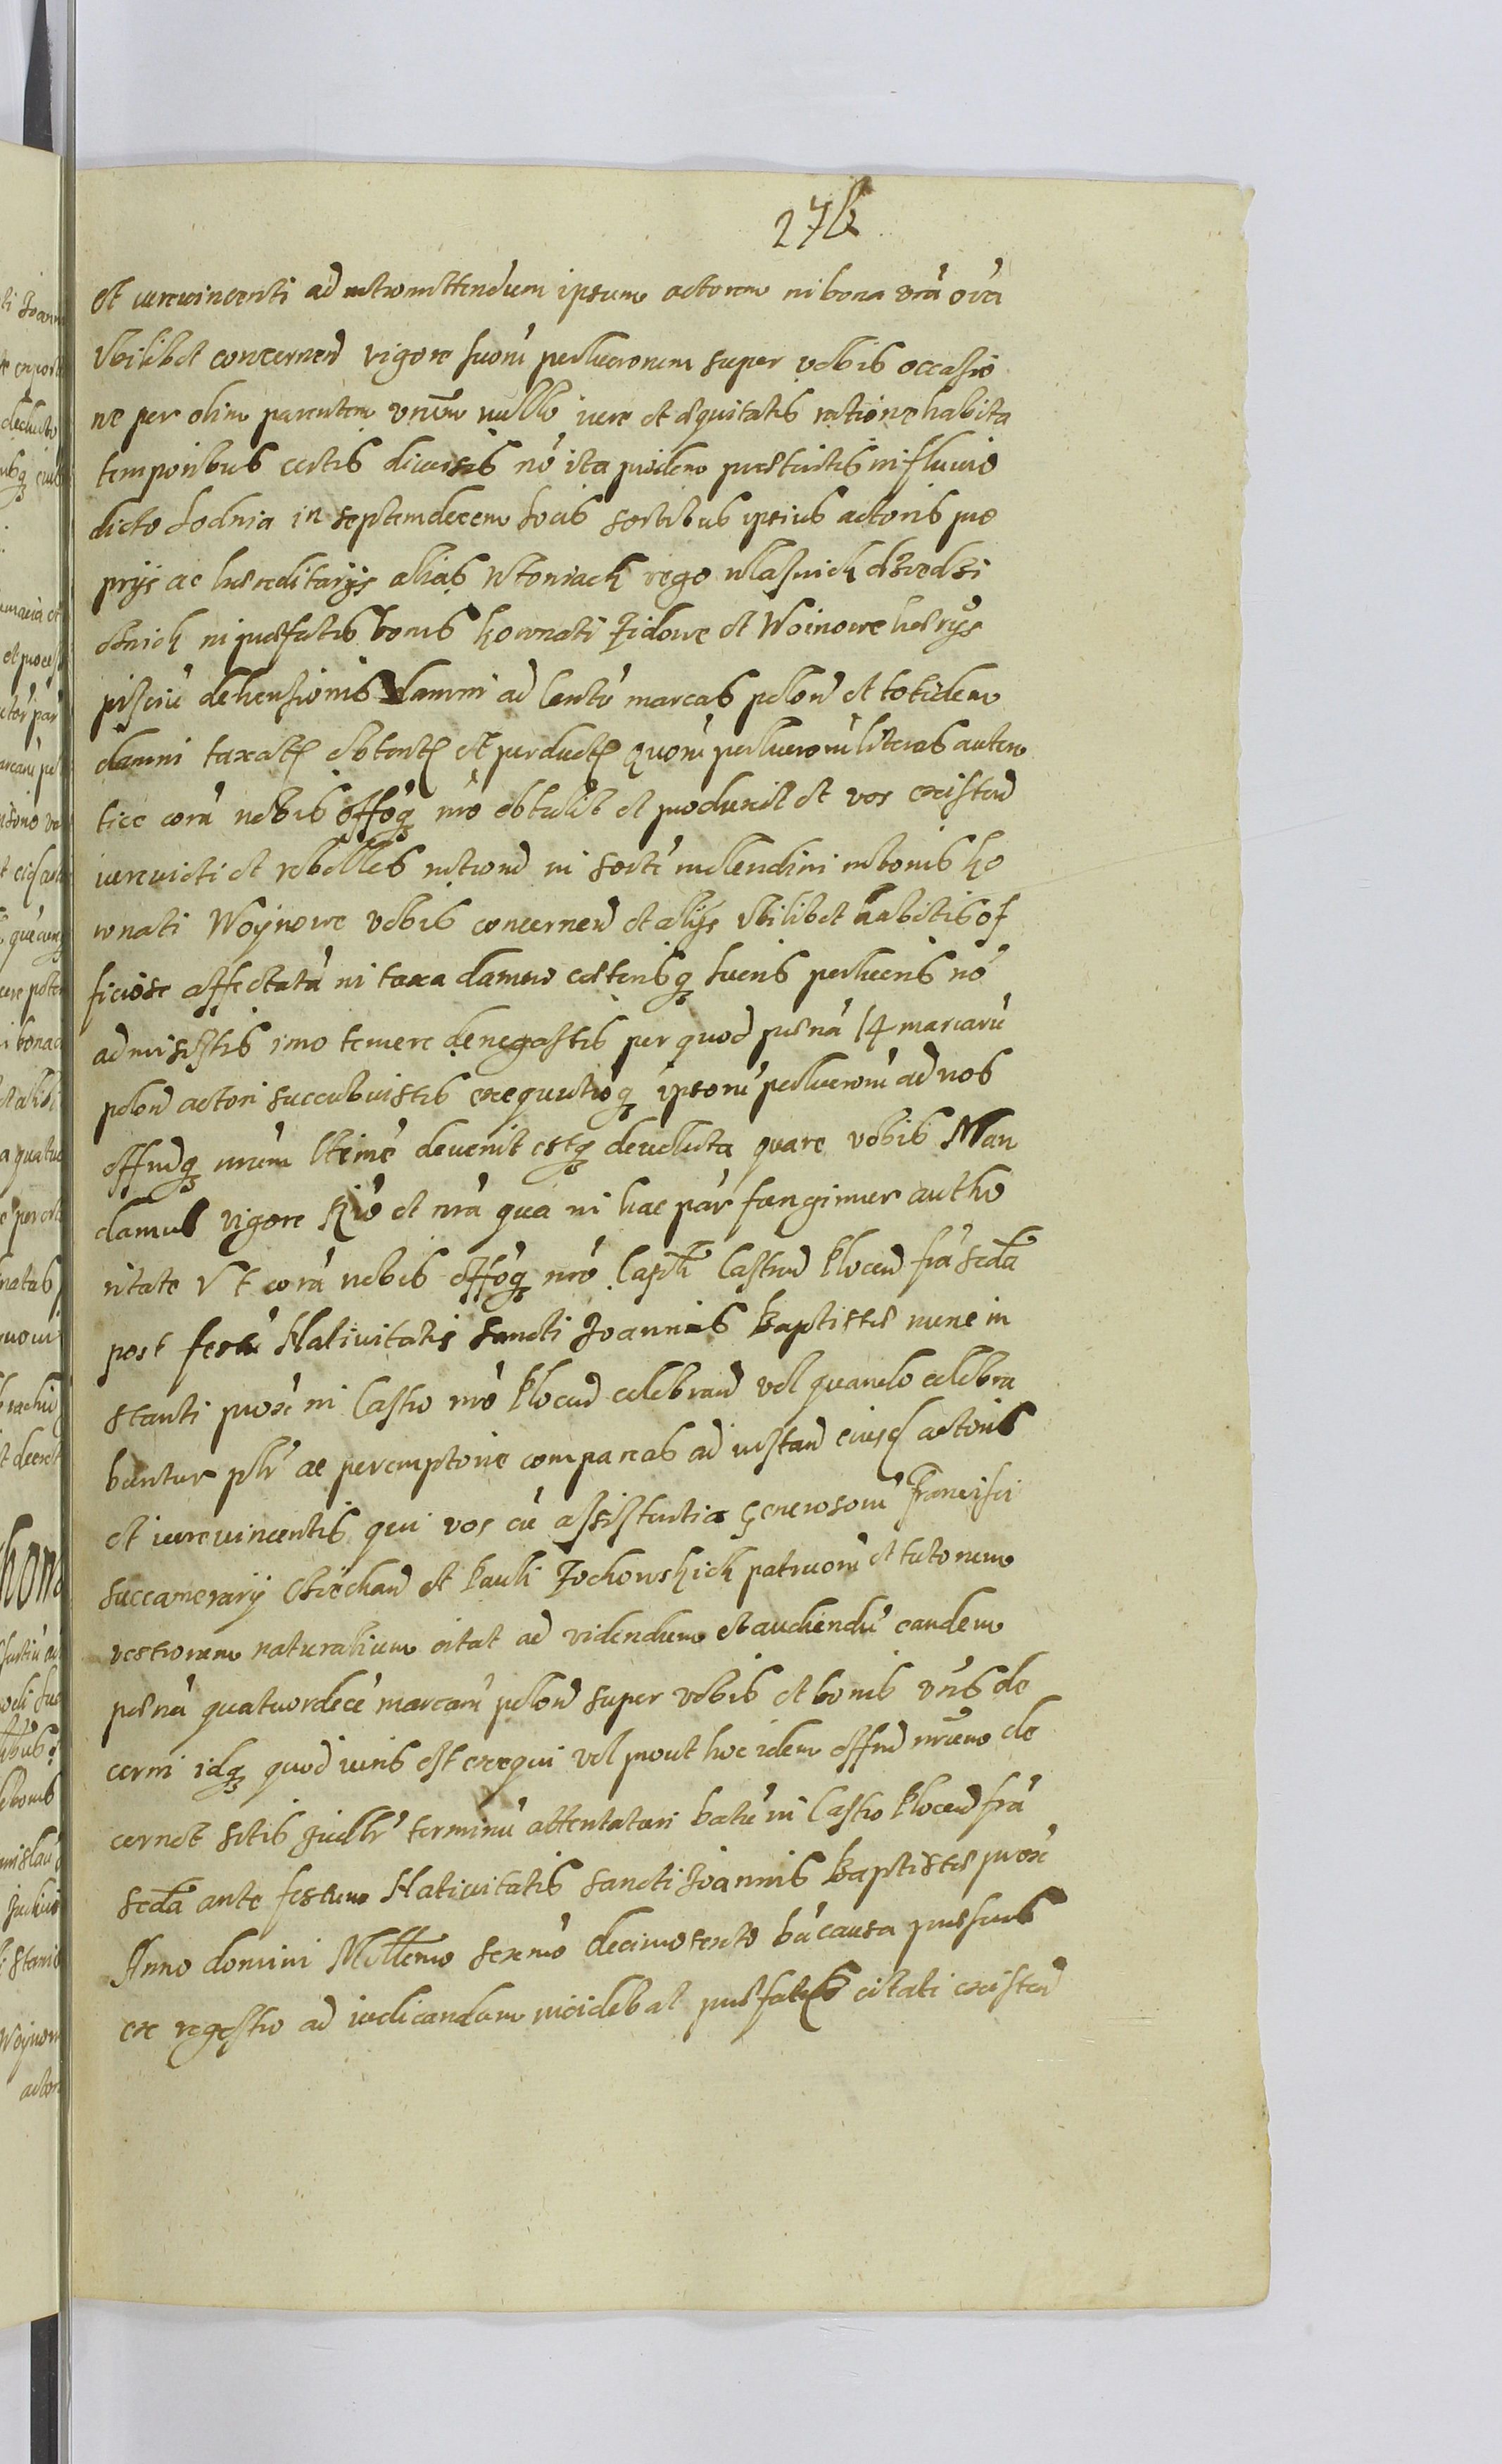 276
et iurevincenti ad intromittendum ipsum actorem in bona vrã oĩa
Vbilibet concernen vigore suorũ perlucrorum super vobis occasio
ne per olim parentem vrũm nullo iure et æquitatis ratione habita
temporibus certis diuersis nõ ita pridem præteritis in fluuio
dicto Lodnia in septemdecem locis sortibus ipsius actoris pro
prijs ac hæreditarijs alias Wtoniach iego własnich dziedzi
cznich in præfatis bonis Kownati Zidowe et Woinowe hærijs
pisciũ dehensionis damni ad Centũ marcas polon et totidem
damni taxat obtent et perduct quorũ perlucrorũ literas auten
tice corã nobis offoq nro obtulit et produxit et vos existen
iurevicti et rebelles introm in sorte molendini in bonis Ko
wnati Woynowe vobis concernen et alijs Vbilibet habitis of
ficiose affectatã in taxa damno cæterisq lucris perlucris nõ
admisistis imo temere denegastis per quod pænã 14 marcarũ
polon actori succubuistis exequutioq ipsorũ perlucrorũ ad nos
offmq nrum ltime devenit estq devoluta quare vobis Man
damus vigore Rio et nrã qua in hac par fungimur autho
ritate Vt corã nobis offoq nro Capli Castren Plocen fra secda
post festũ Natiuitatis Sancti Joannis Baptistæ nunc in
stanti prox in Castro nro Plocen celebran vel quando celebra
buntur plr ac peremptorie compareas ad instan eiusd actoris
et iurevincentis qui vos cũ assistentia Generosorũ Francisci
succamerarij Ciechan et Pauli Zochowskich patruorũ et tutorum
vestrorum naturalium citat ad videndum et audiendũ eandem
pænã quatuordecẽ marcarũ polon super vobis et bonis vris de
cerni idq quod iuris est exequi vel prout hoc idem offm nrum de
cernet sitis Judlr terminũ attentaturi Datũ in Castro Plocen fra
secda ante festum Natiuitatis Sancti Joannis Baptistæ prox
Anno domini Millemo sexmo decimosexto Dũ causa præsens
ex regestro ad iudicandum incidebat præfati citati existen